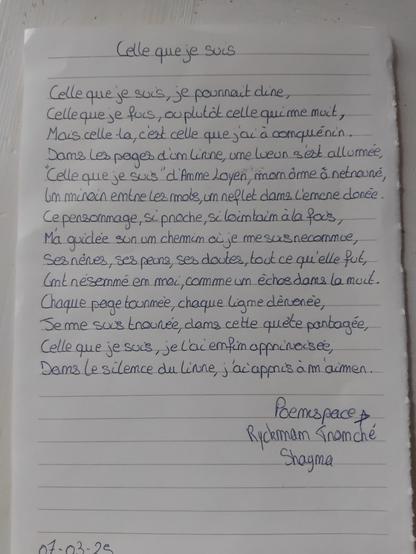 Celle que je suis
Celle que je suis, je pourrait dire,
Celle que je fuis, ou plutôt celle qui me nuit,
Mais celle-là, c'est celle que j'ai à conquérir.
Dans les pages d'un livre, une lueur s'est allumée,
"Celle que je suis" d'Anne Loyer, mon âme à retrouvé,
Un miroir entre les mots, un reflet dans l'encre dorée.
Ce personnage, si proche, si lointain à la fois,
M'a guidée sur un chemin où je me suis reconnue,
Ses rêves, ses peurs, ses doutes, tout ce qu'elle fut,
Ont résonné en moi, comme un échos dans la nuit.
Chaque page tournée, chaque ligne dévorée,
Je me suis trouvée, dans cette quête partagée,
Celle que je suis, je l'ai enfin apprivoisée,
Dans le silence du livre, j'ai appris à m'aimer.
Poemspace
Ryckman Tranché
Shagma
07-03-25